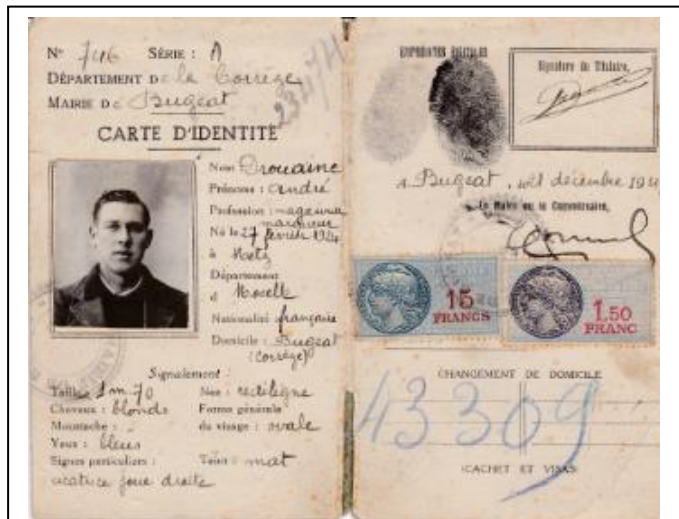 Nº 746 SÉRIE : A
DÉPARTEMENT De la Corrèze
MAIRIE De Bugeat
23474
CARTE D'IDENTITÉ
Nom Drouaine
Prénoms : andré
Profession : magasinier
marqueur
Né le 27 février 1924
à Metz
Département
d Moselle
Nationalité française
Domicile : Bugeat
(Corrèze)
Signalement :
Taille 1m70
Cheveux : blonds
Moustache :
Yeux : bleus
Signes particuliers :
cicatrice joue droite
Nez : rectiligne
Forme générale
du visage : ovale
Teint : mat
EMPREINTES DIGITALES
Signature du Titulaire,
A Bugeat, le 21 décembre 194
Le Maire ou le Commissaire,
15
FRANCS
1,50
FRANC
CHANGEMENT DE DOMICILE
43309
(CACHET ET VISA)